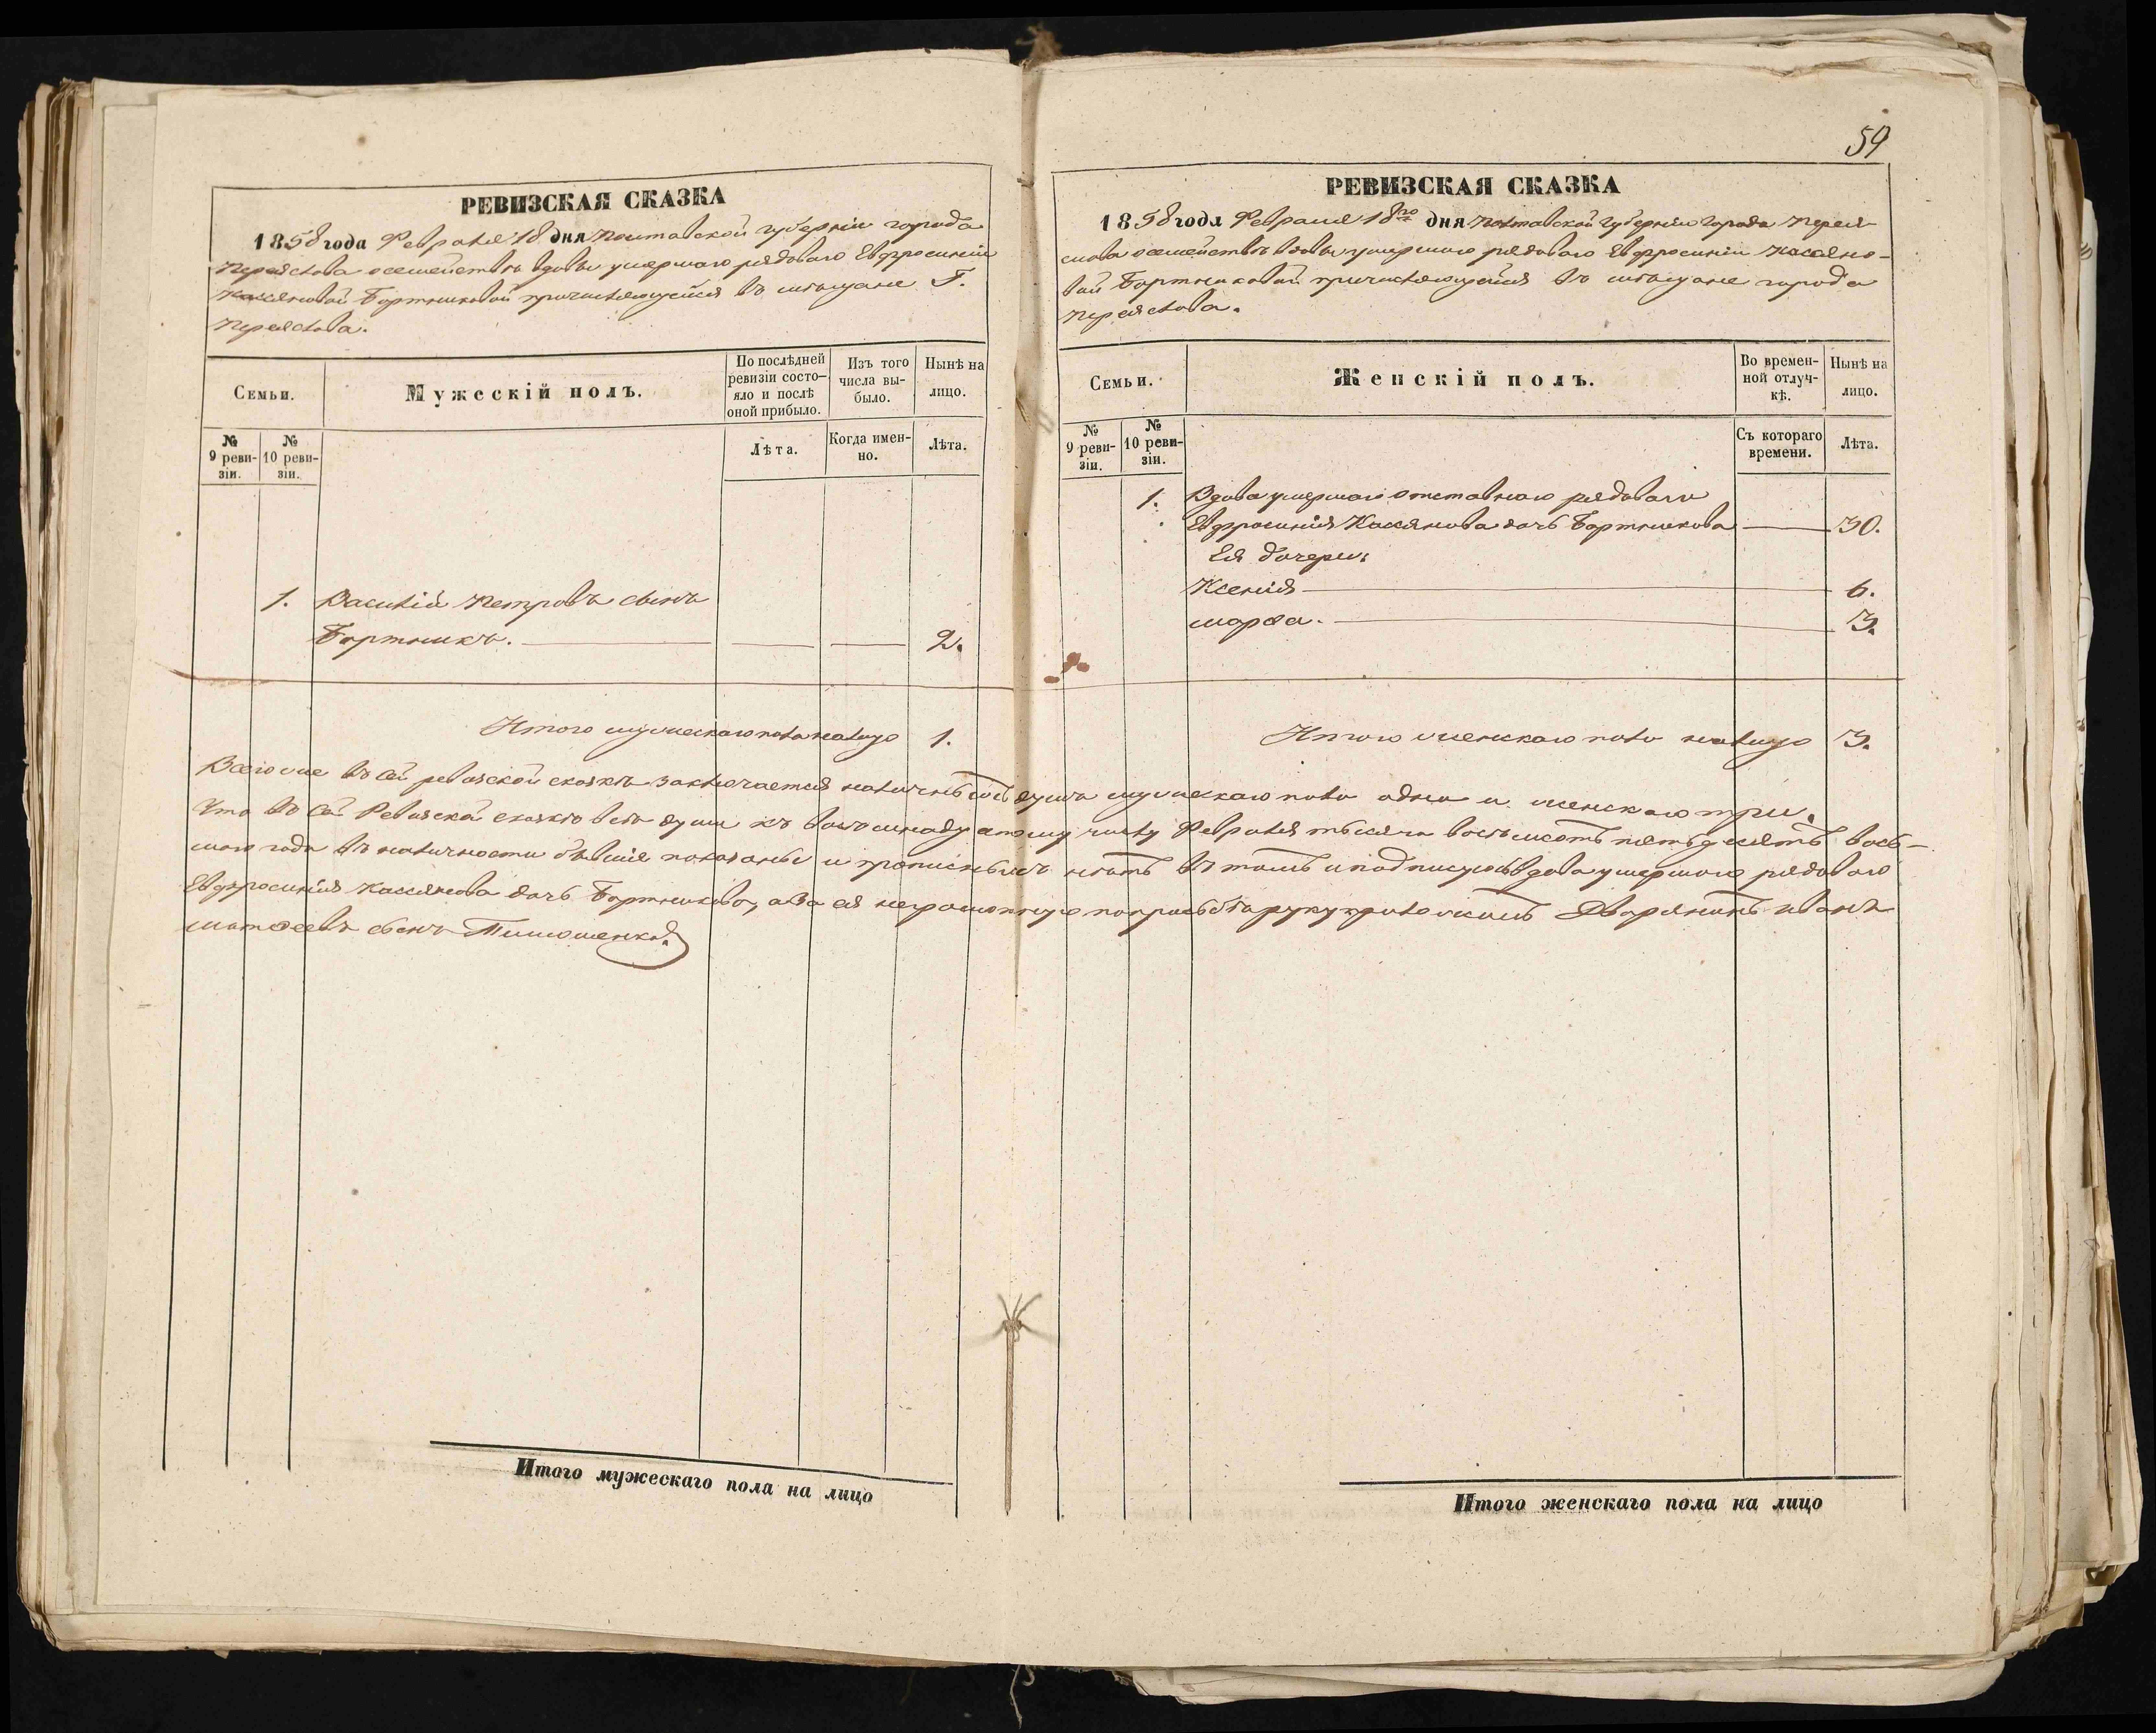 59
РЕВИЗСКАЯ СКАЗКА
1858 года Февраля 18 дня Полтавской губерніи города
Переяслова о семействѣ вдовы умершаго рядоваго Евфросиніи
Касьяновой Бортниковой причисляющейся въ мѣщане Г.
Переяслова.
Семьи.
Мужескій полъ.
По послѣдней ревизіи состо-
яло и послѣ оной прибыло.
Изъ того числа вы-
было.
Нынѣ на лицо.
№ 9 реви-
зіи.
№ 10 реви-
зіи.
Лѣта.
Когда имен-
но.
Лѣта.
1. Василій Петровъ сынъ
Бортникъ. 2.
Итого мужескаго пола налицо 1.
РЕВИЗСКАЯ СКАЗКА
1858 года Февраля 18го дня Полтавской Губерніи Города Перея-
слова о семействѣ вдовы умершаго рядоваго Евфросиніи Касьяно-
вой Бортниковой причисляющейся въ мѣщане города
Переяслова.
Семьи.
Женскій полъ.
Во времен-
ной отлуч-
кѣ.
Нынѣ на лицо.
№ 9 реви-
зіи.
№ 10 реви-
зіи.
Съ котораго времени.
Лѣта.
1. Вдова умершаго отставнаго рядоваго
Евфросинія Касьянова дочь Бортникова 30.
Ея дочери:
Ксенія 6.
Марѳа. 3.
Итого женскаго пола налицо 3.
Всего же въ сей ревизской сказкѣ заключается наличныхъ душъ мужескаго пола одна и женскаго три.
Что въ сей Ревизской сказкѣ всѣ души къ восьмнадцатому числу Февраля тысяча восемсотъ пятьдесятъ вось-
маго года въ наличности бывшіе показаны и прописныхъ нѣтъ въ томъ и подписуюсь вдова умершаго рядоваго
Евфросинія Касьянова дочь Бортникова, а за ея неграмотную по просьбѣ руку приложилъ Дворянинъ Иванъ
Матѳеевъ сынъ Тимошенко.
Итого мужескаго пола на лицо
Итого женскаго пола на лицо